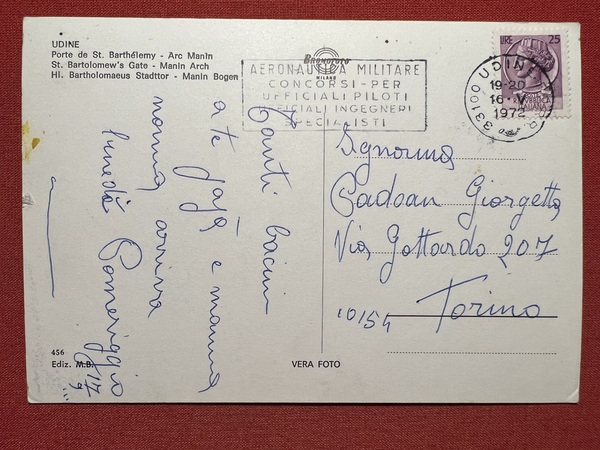 UDINE
Porte de St. Barthélemy - Arc Manin
St. Bartolomew's Gate - Manin Arch
Hl. Bartholomaeus Stadttor - Manin Bogen
BROMOFOTO
MILANO
AERONAUTICA MILITARE
CONCORSI-PER
UFFICIALI PILOTI
UFFICIALI INGEGNERI
SPECIALISTI
33100 UDINE
19-20
16-V
1972
LIRE 25
Tanti bacini
a te papà e mamma
nonna arriva
lunedì Pomeriggio
Signorina
Padoan Giorgetta
Via Gottardo 207
10154 Torino
456
Ediz. M.B.
VERA FOTO